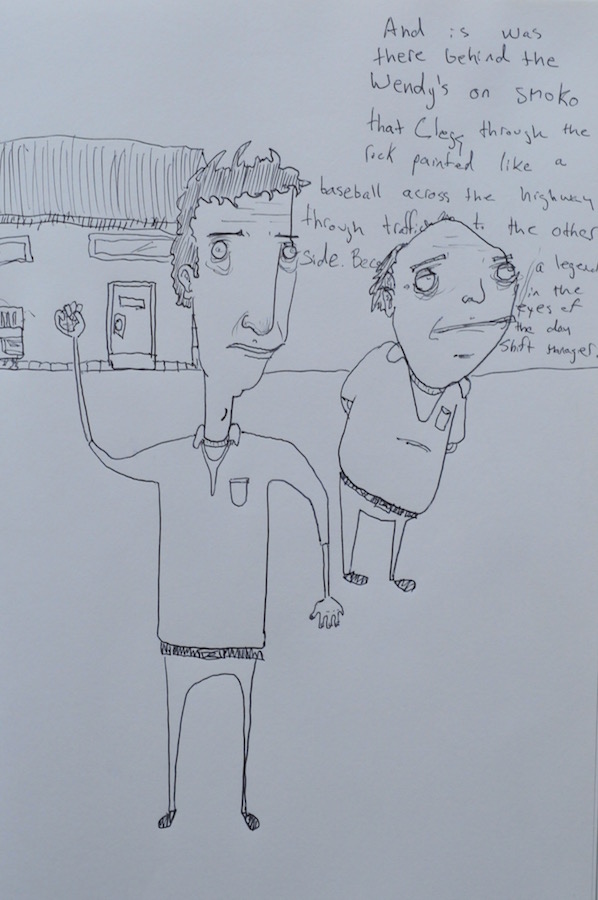 And is was
there behind the
Wendy's on smoko
that Clegg through the
rock painted like a
baseball across the highway
through traffic to the other
side. Bec a legend
in the
eyes of
the day
shift manager.